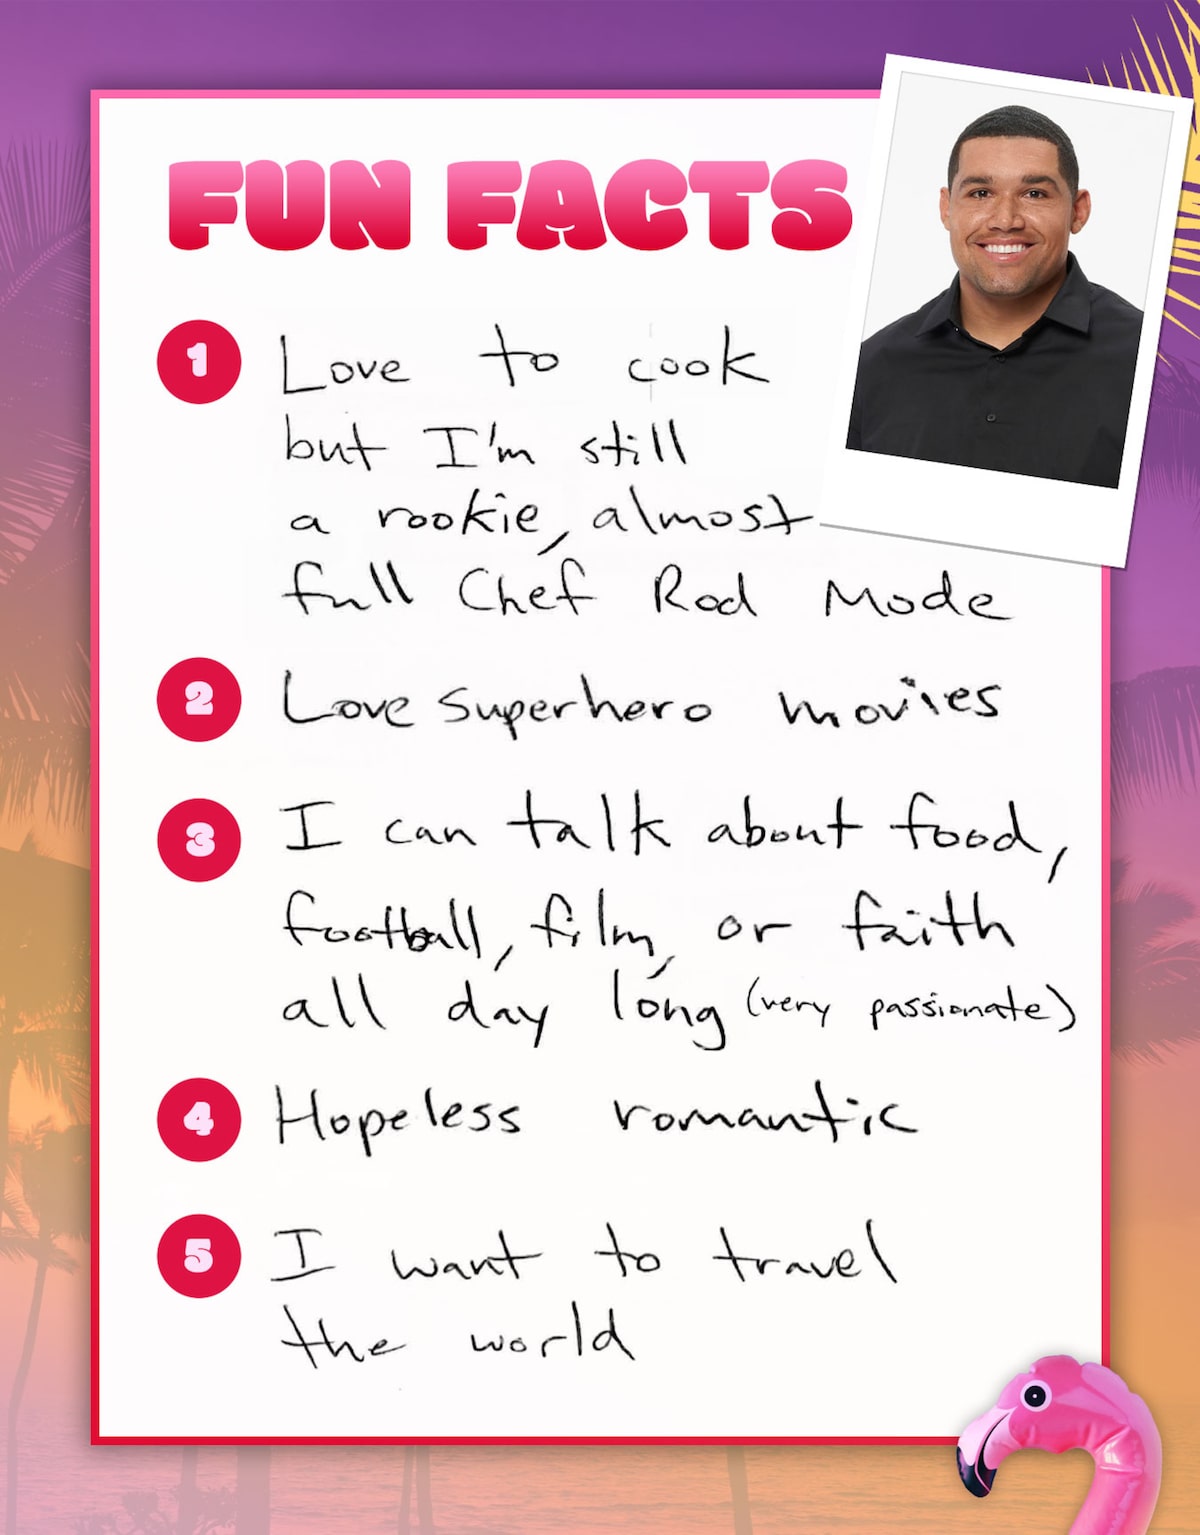 FUN FACTS
1 Love to cook
but I'm still
a rookie, almost
full Chef Rod Mode
2 Love superhero movies
3 I can talk about food,
football, film, or faith
all day long (very passionate)
4 Hopeless romantic
5 I want to travel
the world